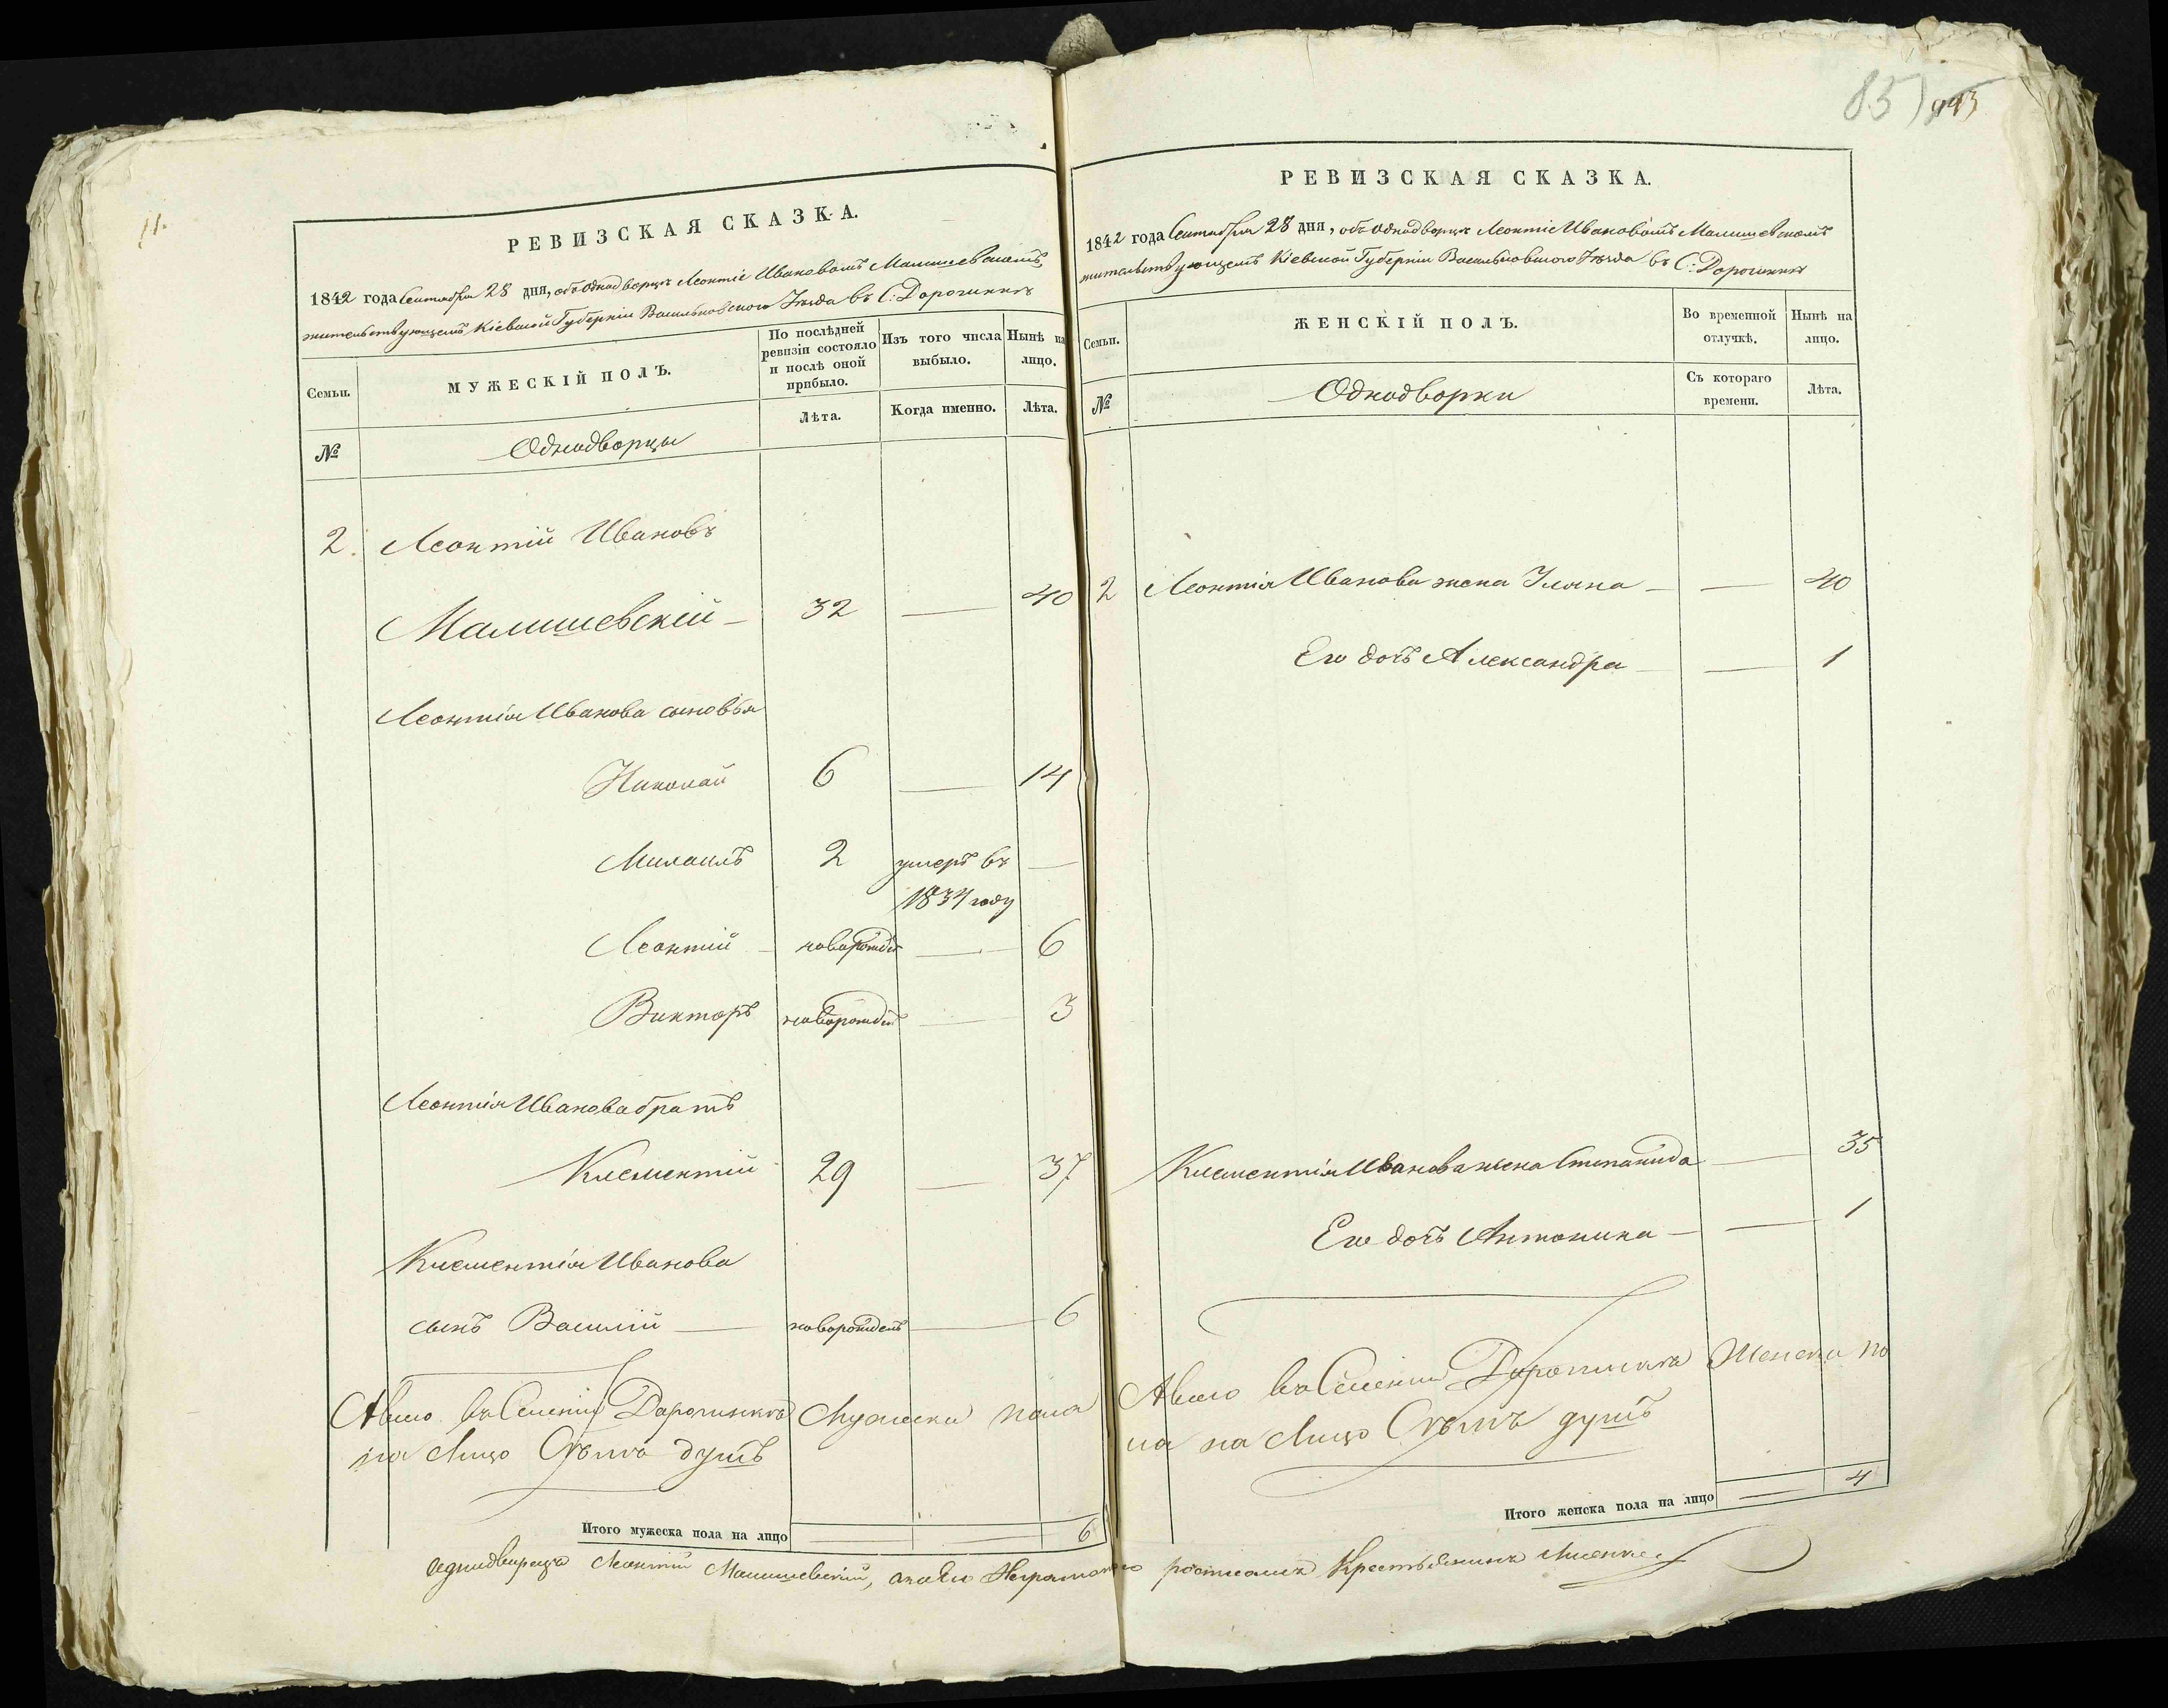 11.
РЕВИЗСКАЯ СКАЗКА.
1842 года Сентября 28 дня, объ однодворцѣ Леонтіе Ивановомъ Малишевскомъ,
жительствующемъ Кіевской Губерніи Васильковского Уѣзда въ С: Дорогинкѣ
Семьи.
МУЖЕСКІЙ ПОЛЪ.
По послѣдней ревизіи состояло и послѣ оной прибыло.
Изъ того числа выбыло.
Нынѣ на лицо.
№
Однодворцы
Лѣта.
Когда именно.
Лѣта.
2. Леонтій Ивановъ
Малишевскій — 32 — 40
Леонтія Иванова сыновья
Николай 6 — 14
Михаилъ 2 умеръ въ —
1834 году
Леонтій — новорожден — 6
Викторъ новорожден — 3
Леонтія Иванова братъ
Клементій 29 — 37
Клементія Иванова
сынъ Василій — новорожденъ — 6
Авсего въ Селеніи Дорогинкѣ Мужеска пола
на Лицо душъ
Итого мужеска пола на лицо — — 6
85 993
РЕВИЗСКАЯ СКАЗКА.
1842 года Сентября 28 дня, объ однодворцѣ Леонтіе Ивановомъ Малишевскомъ
жительствующемъ Кіевской Губерніи Васильковского Уѣзда въ С: Дорогинкѣ
Семьи.
ЖЕНСКІЙ ПОЛЪ.
Во временной отлучкѣ.
Нынѣ на лицо.
№
Однодворки
Съ котораго времени.
Лѣта.
2 Леонтія Иванова жена Уляна — — 40
Его дочь Александра — — 1
Клементія Иванова жена Степанида — 35
Его дочь Антонина — — 1
Авсего въ Селеніи Дорогинкѣ Женска по
ла на Лицо душъ
Итого женска пола на лицо — 4
однодворецъ Леонтій Малишевскій, а неграмотного росписался Крестьянинъ